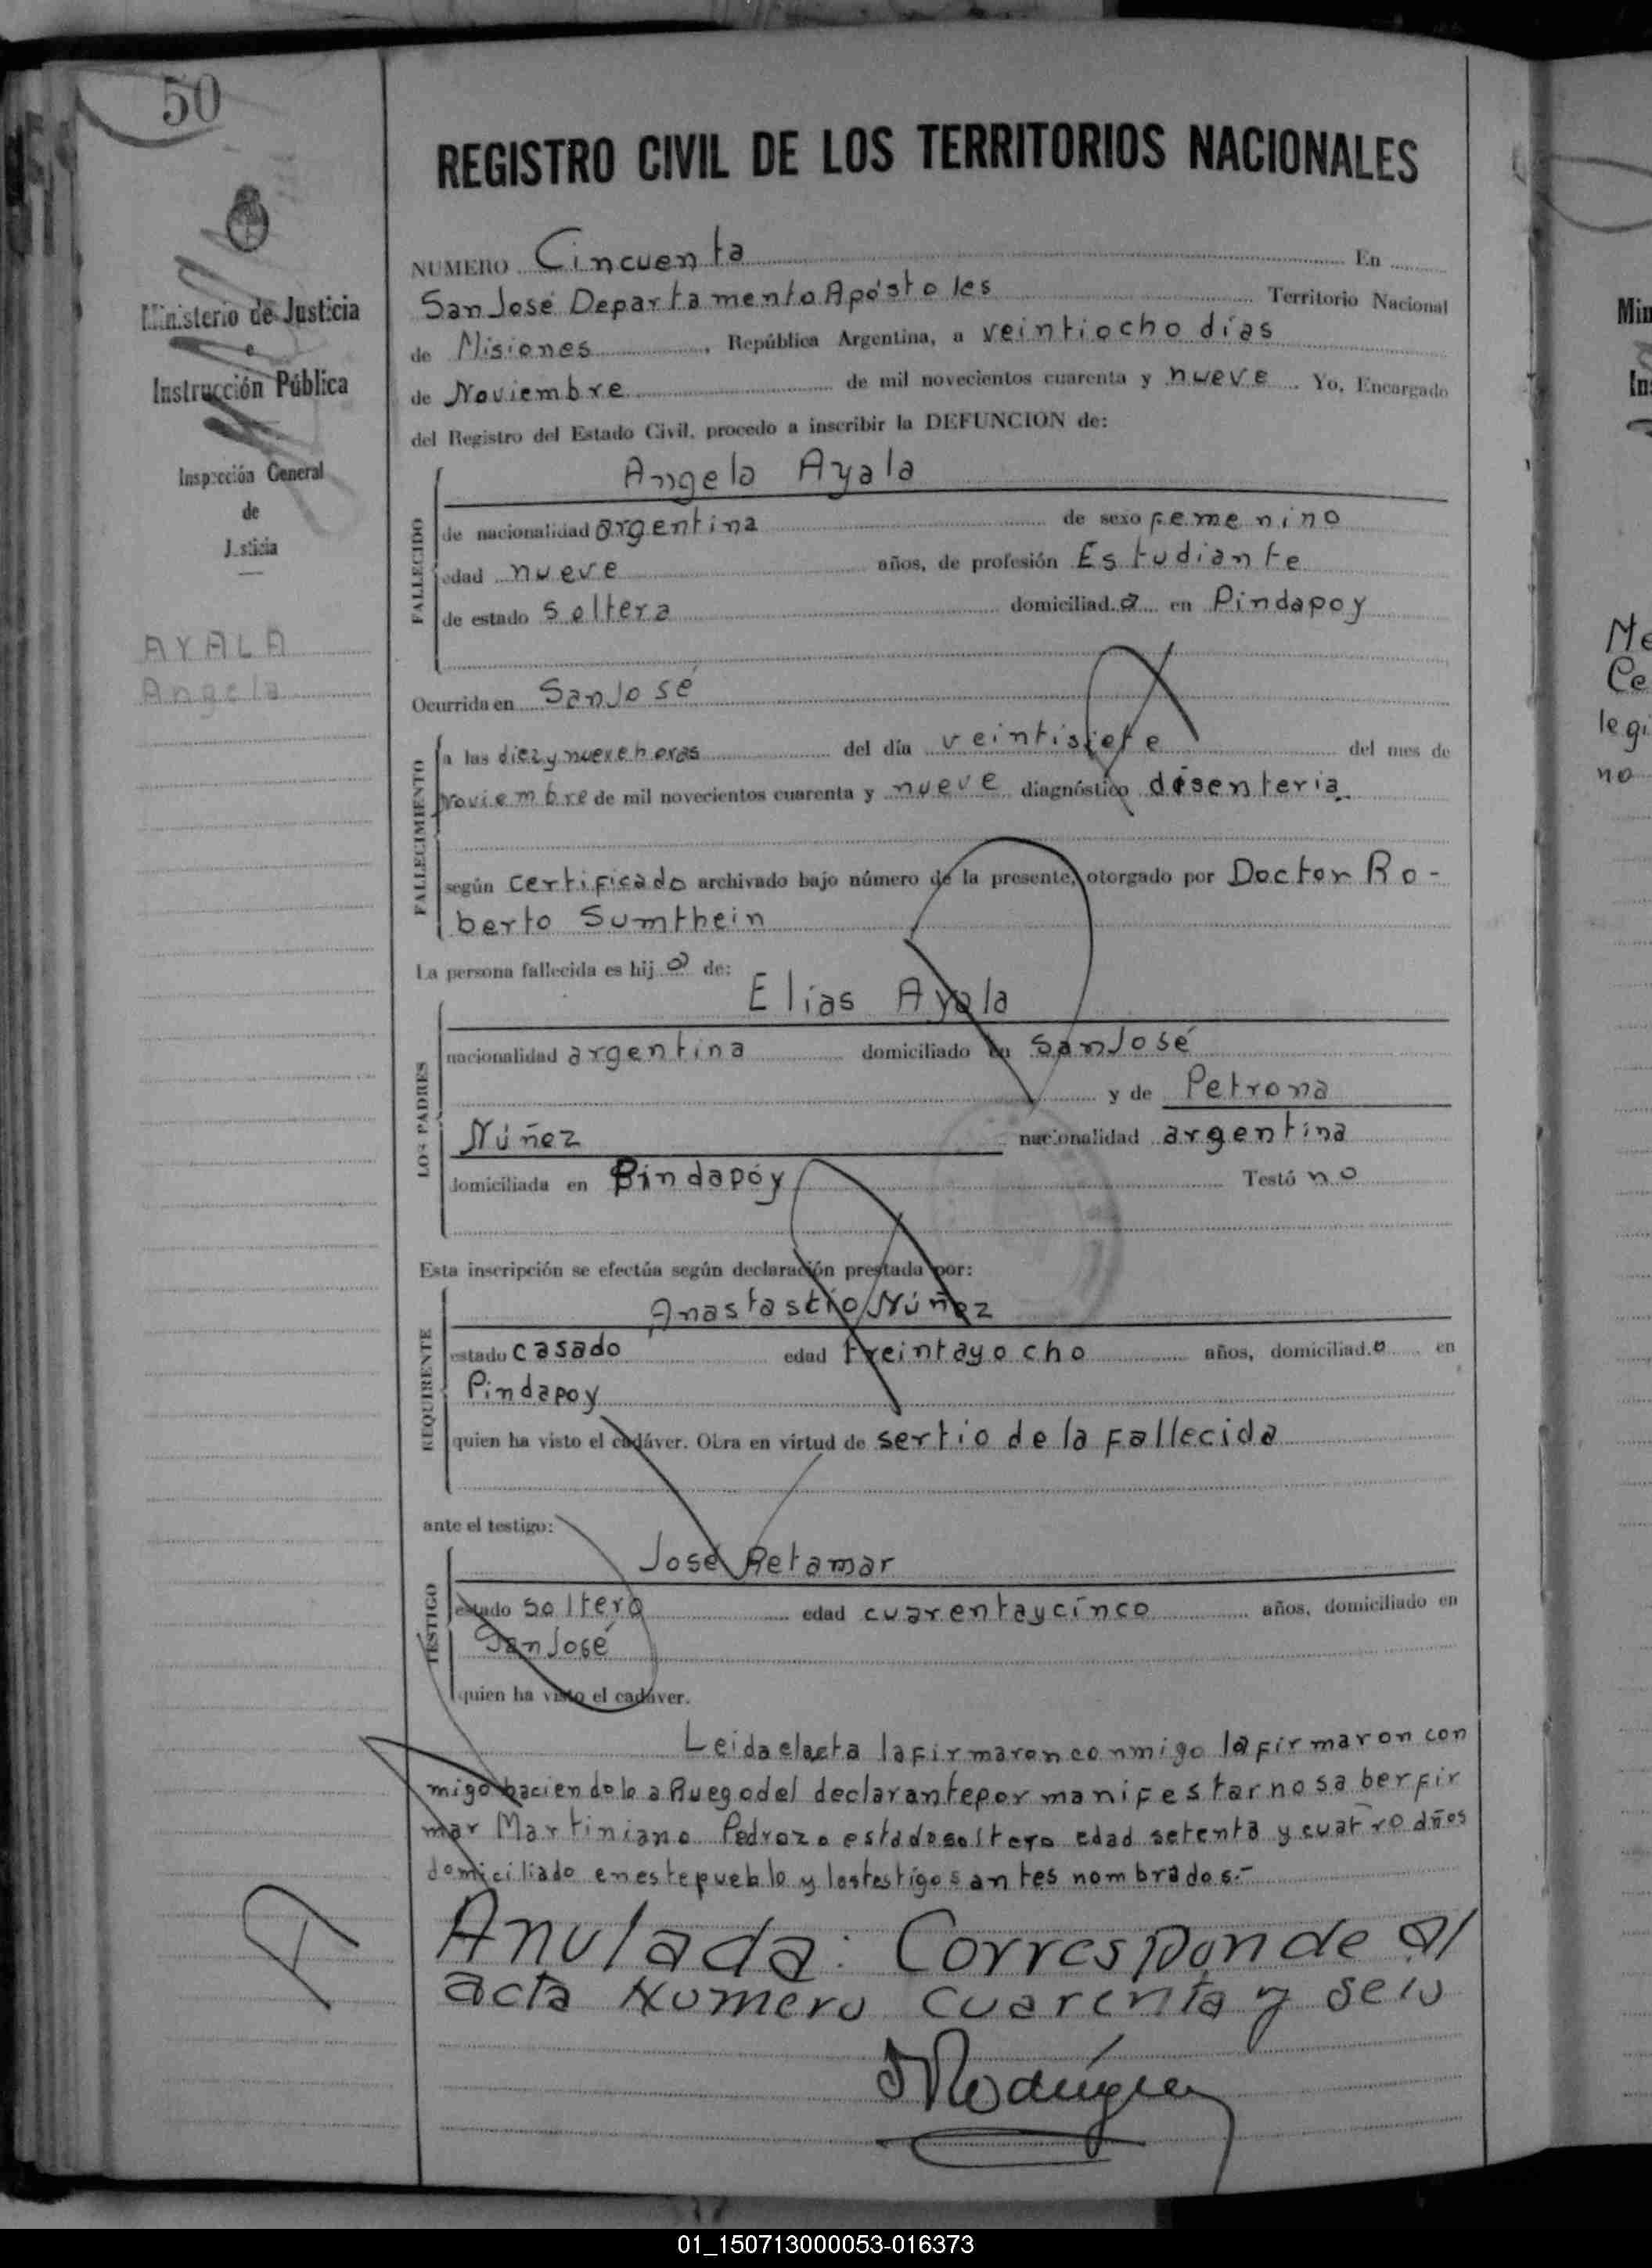 50
REGISTRO CIVIL DE LOS TERRITORIOS NACIONALES
NUMERO Cincuenta En
San José Departamento Apóstoles Territorio Nacional
de Misiones, República Argentina, a veintiocho días
de Noviembre de mil novecientos cuarenta y nueve. Yo, Encargado
del Registro del Estado Civil, procedo a inscribir la DEFUNCION de:
Ministerio de Justicia
e
Instrucción Pública
Inspección General
de
Justicia
AYALA
Angela
FALLECIDO
Angela Ayala
de nacionalidad argentina de sexo femenino
edad nueve años, de profesión Estudiante
de estado soltera domiciliad a en Pindapoy
Ocurrida en San José
FALLECIMIENTO
a las diez y nueve horas del día veintisiete del mes de
Noviembre de mil novecientos cuarenta y nueve diagnóstico disenteria
según certificado archivado bajo número de la presente, otorgado por Doctor Ro-
berto Sumthein
La persona fallecida es hij a de:
LOS PADRES
Elias Ayala
nacionalidad argentina domiciliado en San José
y de Petrona
Núñez nacionalidad argentina
domiciliada en Pindapóy Testó no
Esta inscripción se efectúa según declaración prestada por:
REQUIRENTE
Anastastio Núñez
estado casado edad treinta y ocho años, domiciliad o en
Pindapoy
quien ha visto el cadáver. Obra en virtud de ser tio de la fallecida
ante el testigo:
TESTIGO
José Retamar
estado soltero edad cuarenta y cinco años, domiciliado en
San José
quien ha visto el cadáver.
Leida el acta la firmaron conmigo la firmaron con
migo haciendolo a Ruego del declarante por manifestar no saber fir
mar Martiniano Pedrozo estado soltero edad setenta y cuatro años
domiciliado en este pueblo y los testigos antes nombrados.-
Anulada: Corresponde al
acta Numero cuarenta y seis
Rodríguez
01_150713000053-016373